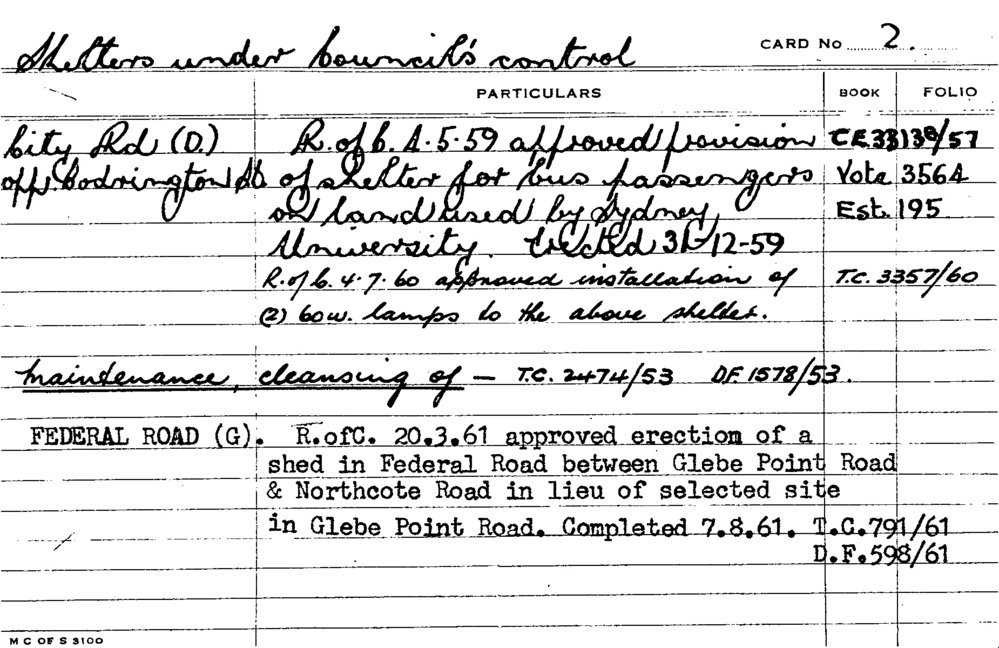 Shelters under Council's control CARD No 2.
PARTICULARS BOOK FOLIO
City Rd (D.) R. of C. 4.5.59 approved provision CE 33 138/57
opp. Codrington St. of shelter for bus passengers Vote 3564
on land used by Sydney Est. 195
University. Erected 31-12-59
R. of C. 4.7.60 approved installation of T.C. 3357/60
(2) 60w. lamps to the above shelter.
Maintenance, cleansing of — T.C. 2474/53 D.F. 1578/53.
FEDERAL ROAD (G). R.ofC. 20.3.61 approved erection of a
shed in Federal Road between Glebe Point Road
& Northcote Road in lieu of selected site
in Glebe Point Road. Completed 7.8.61. T.C.791/61
D.F.598/61
M C OF S 3100